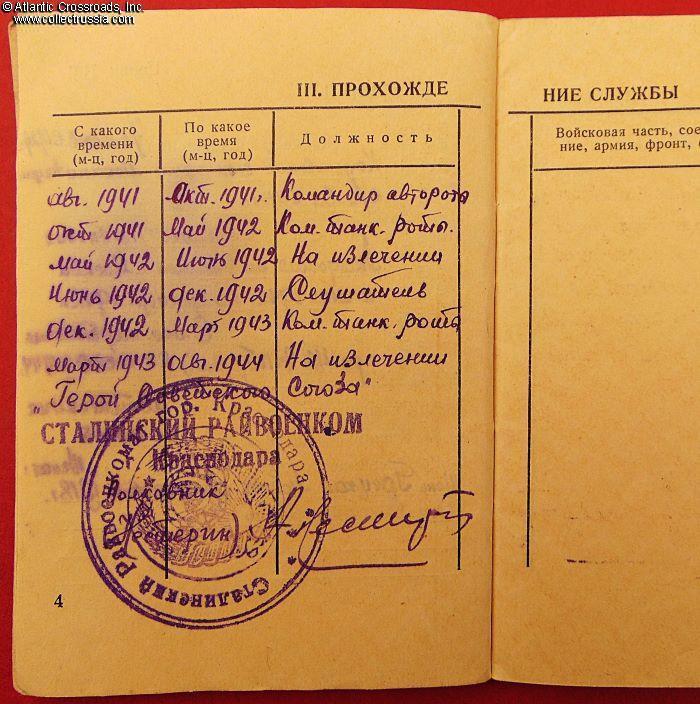 © Atlantic Crossroads, Inc.
www.collectrussia.com
III. ПРОХОЖДЕ НИЕ СЛУЖБЫ
С какого времени (м-ц, год) По какое время (м-ц, год) Должность Войсковая часть, сое
ние, армия, фронт,
Авг. 1941 Окт. 1941г. Командир автороты
Окт 1941 Май 1942 Ком. танк. роты.
Май 1942 Июнь 1942 На излечении
Июнь 1942 Дек. 1942 Слушатель
Дек. 1942 Март 1943 Ком. танк. роты
Март 1943 Авг. 1944 На излечении
"Герой Советского Союза"
СТАЛИНСКИЙ РАЙВОЕНКОМ
г. Краснодара
Полковник
Сталинский Райвоенкомат гор. Краснодара
4